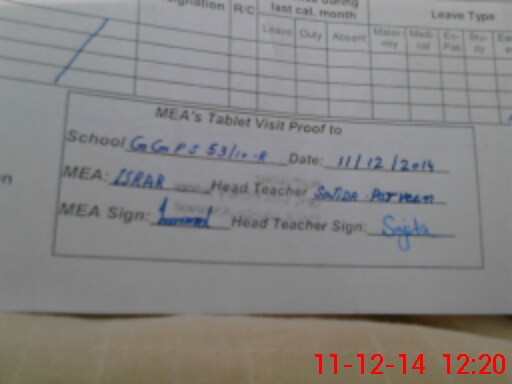 signation R/C last cal. month Leave Type
Leave Duty Absent Mater-nity Medi-cal Ex-Pak Stu-dy
MEA's Tablet Visit Proof to
School GGPS 53/10-R Date: 11/12/2014
MEA: ISRAR Head Teacher SAJIDA Parveen
MEA Sign: Head Teacher Sign: Sajida
11-12-14 12:20